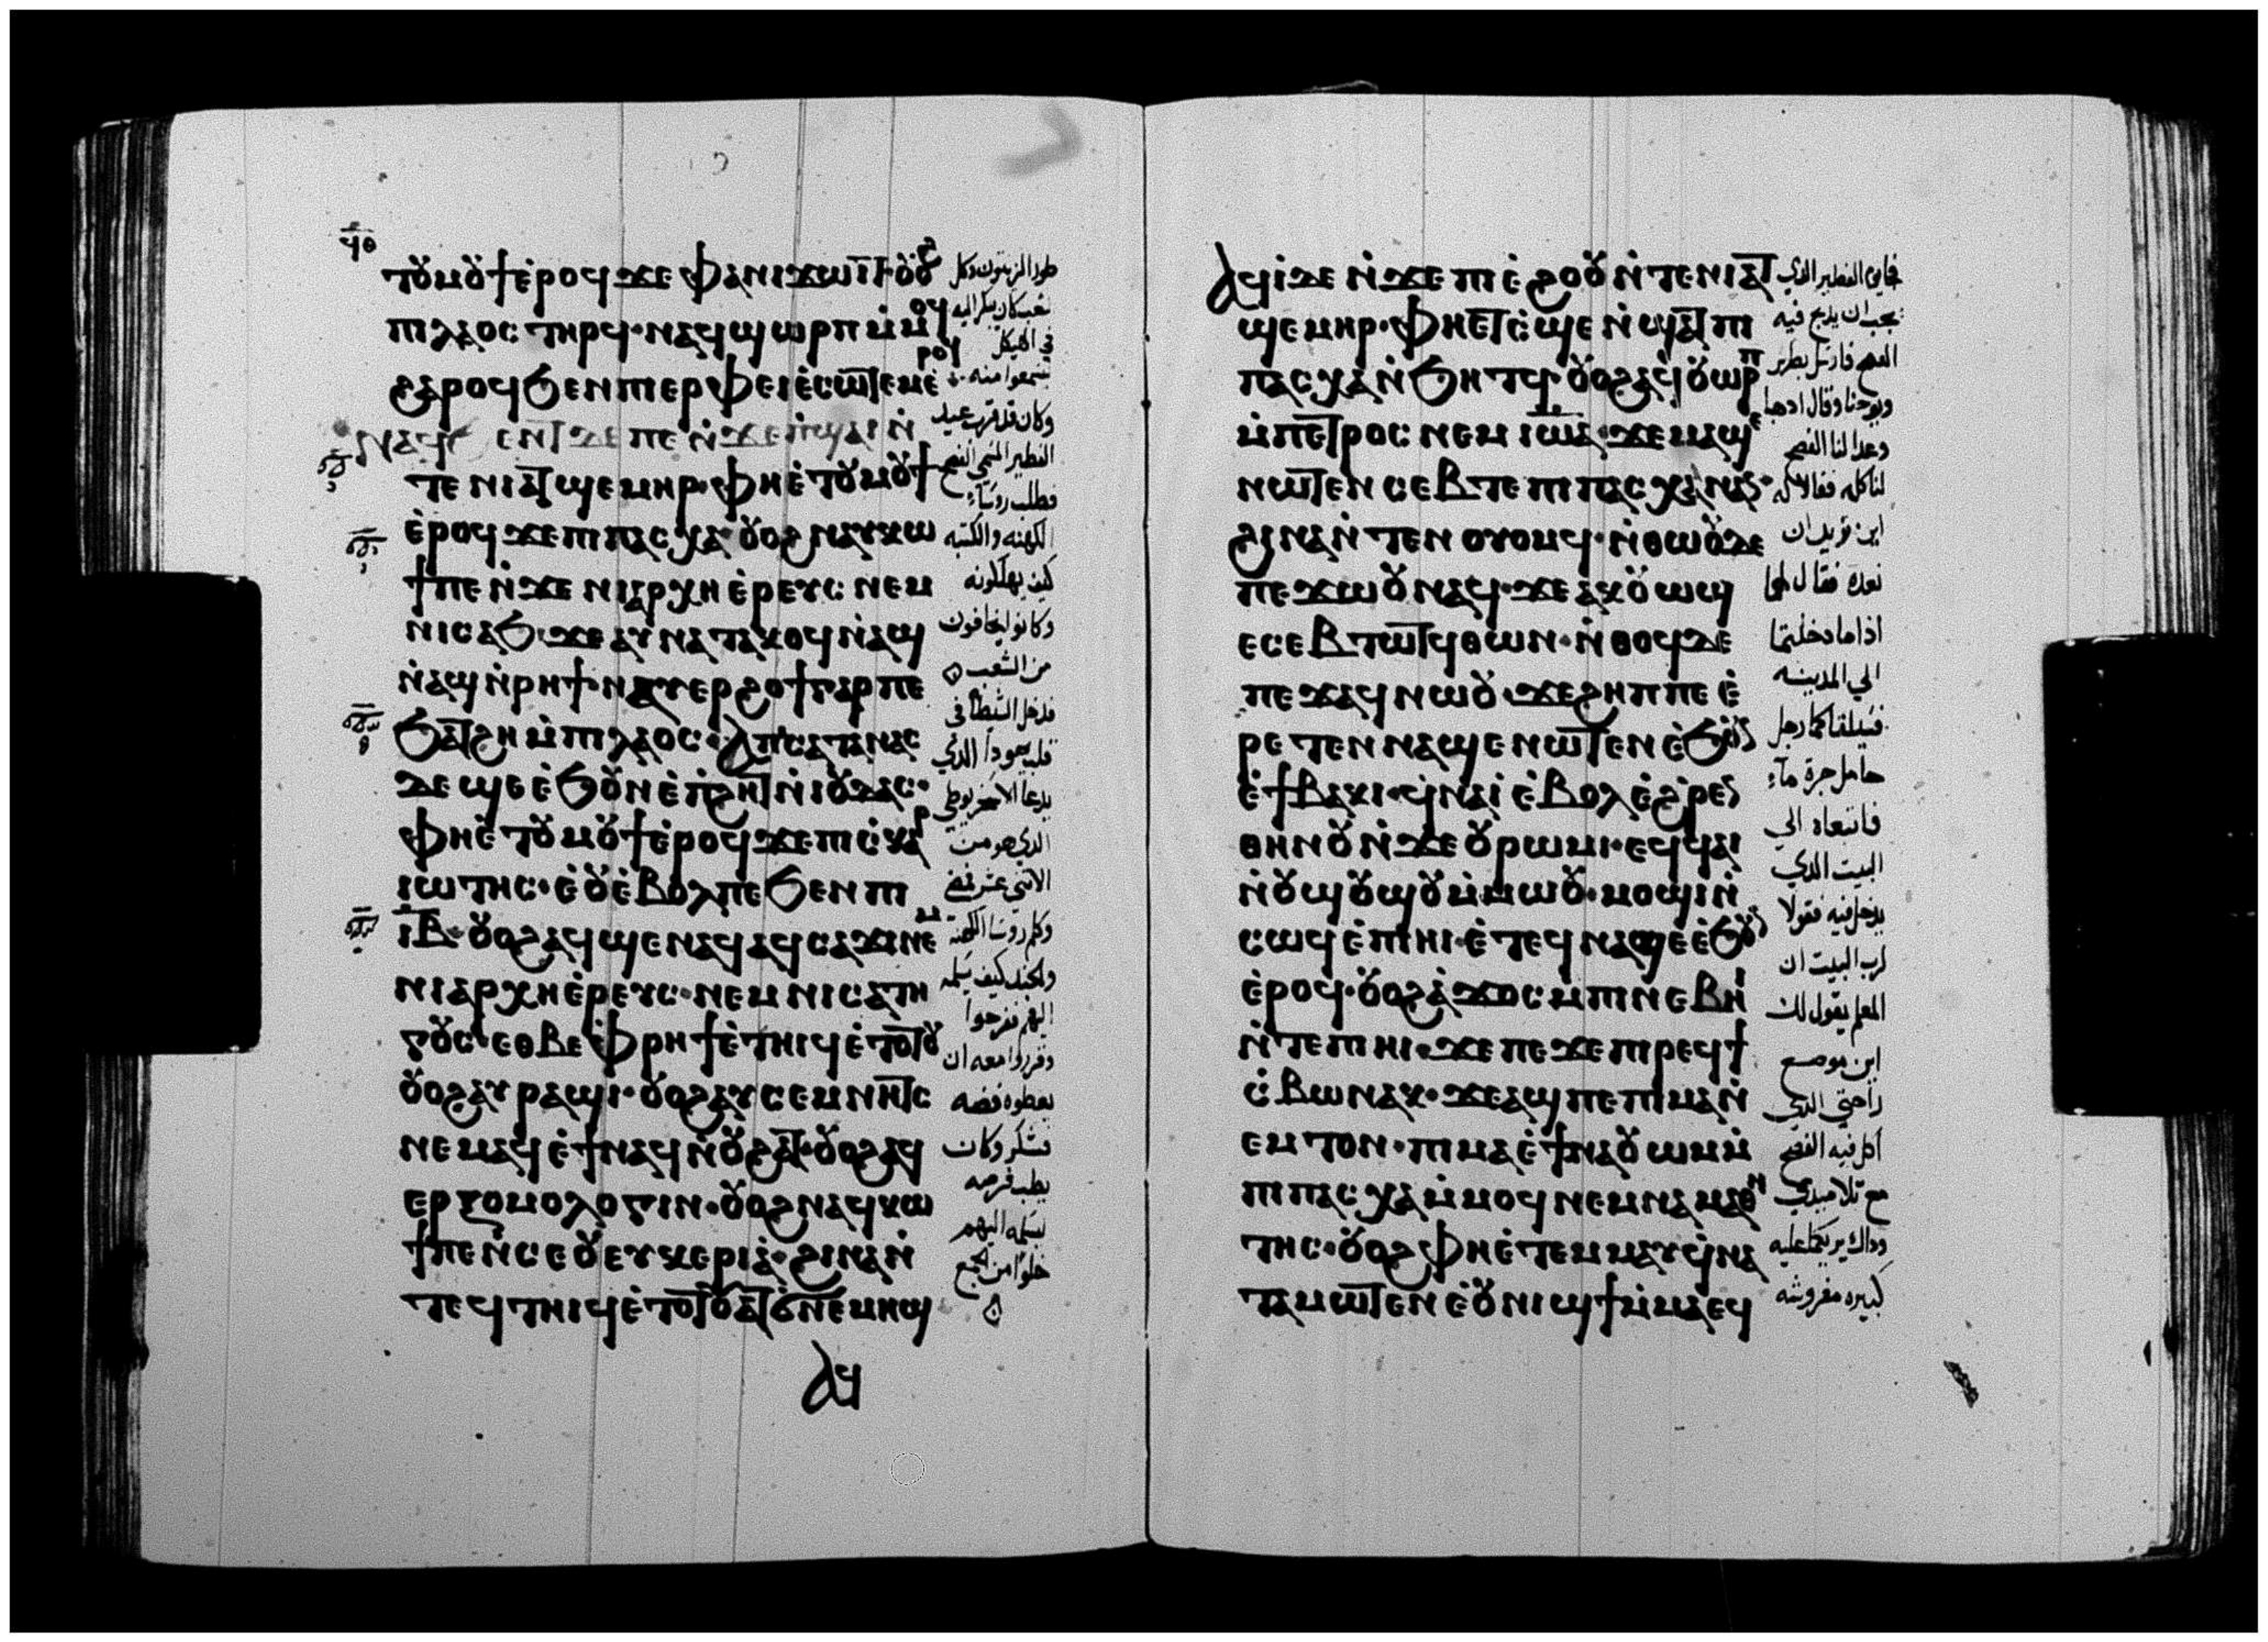 ϥⲑ
ⲧⲟⲩⲙⲟⲩϯⲉ̀ⲣⲟϥ ϫⲉ ⲫⲁⲛⲓϫⲱⲓⲧ· ⲟⲩⲟϩ
ⲡⲓⲗⲁⲟⲥ ⲧⲏⲣϥ· ⲛⲁϥϣⲱⲣⲡ ⲙ̀ⲙⲟϥ
ϩⲁⲣⲟϥ ϧⲉⲛ ⲡⲓⲉⲣⲫⲉⲓ ⲉ̀ⲥⲱⲧⲉⲙ ⲉ̀ⲣⲟϥ
ⲉⲛⲧ ⲇⲉ ⲡⲉ ⲛ̀ϫⲉ ⲡ̀ϣⲁⲓ ⲛ̀
ⲧⲉ ⲛⲓⲁⲧϣⲉⲙⲏⲣ· ⲫⲏⲉ̀ⲧⲟⲩⲙⲟⲩϯ
ⲉ̀ⲣⲟϥ ϫⲉ ⲡⲓⲡⲁⲥⲭⲁ· ⲟⲩⲟϩ ⲛⲁⲩⲕⲱ
ϯ ⲡⲉ ⲛ̀ϫⲉ ⲛⲓⲁⲣⲭⲏⲉ̀ⲣⲉⲩⲥ ⲛⲉⲙ
ⲛⲓⲥⲁϧ· ϫⲉ ⲁⲩⲛⲁⲧⲁⲕⲟϥ ⲛ̀ⲁϣ
ⲛ̀ⲁϣ ⲛ̀ⲣⲏϯ· ⲛⲁⲩⲉⲣϩⲟϯ ⲅⲁⲣ ⲡⲉ
ϧⲁⲧϩⲏ ⲙ̀ⲡⲓⲗⲁⲟⲥ· ⲁⲡⲥⲁⲧⲁⲛⲁⲥ
ⲇⲉ ϣⲉ ⲉ̀ϧⲟⲩⲛ ⲉ̀ⲡ̀ϩⲏⲧ ⲛ̀ⲓⲟⲩⲇⲁⲥ·
ⲫⲏⲉ̀ⲧⲟⲩⲙⲟⲩϯ ⲉ̀ⲣⲟϥ ϫⲉ ⲡⲓⲥ̀ⲕⲁⲣ
ⲓⲱⲧⲏⲥ· ⲉ̀ⲟⲩⲉ̀ⲃⲟⲗ ⲡⲉ ϧⲉⲛ ⲡⲓ
ⲓⲃ· ⲟⲩⲟϩ ⲁϥϣⲉⲛⲁϥ ⲁϥⲥⲁϫⲓ ⲛⲉⲙ
ⲛⲓⲁⲣⲭⲏⲉ̀ⲣⲉⲩⲥ· ⲛⲉⲙ ⲛⲓⲥⲁⲧⲏ
ⲅⲟⲩⲥ· ⲉⲑⲃⲉ ⲫ̀ⲣⲏϯ ⲉ̀ⲧⲏⲓϥ ⲉ̀ⲧⲟⲧⲟⲩ
ⲟⲩⲟϩ ⲁⲩⲣⲁϣⲓ· ⲟⲩⲟϩ ⲁⲩⲥⲉⲙⲛⲏⲧⲥ
ⲛⲉⲙⲁϥ ⲉ̀ϯⲛⲁϥ ⲛ̀ⲟⲩϩⲁⲧ· ⲟⲩⲟϩ ⲁϥ
ⲉⲣⲝⲟⲙⲟⲗⲟⲅⲓⲛ· ⲟⲩⲟϩ ⲛⲁϥⲕⲱ
ϯ ⲡⲉ ⲛ̀ⲥⲉⲟⲩⲉⲩⲕⲉⲣⲓⲁ̀· ϩⲓⲛⲁ ⲛ̀
ⲧⲉϥⲧⲏⲓϥ ⲉ̀ⲧⲟⲧⲟⲩ ⲁⲧϭⲛⲉ ⲙⲏϣ
ⲁϥ
طور الزيتون وكل
شعب كان يبكر اليه
في الهيكل
ليسمعوا منه
وكان قد قرب عيد
الفطير المسمى الفصح
فطلب روسآء
الكهنه والكتبه
كيف يهلكونه
وكانوا يخافون
من الشعب
فدخل الشيطان في
قلب يهودا الذي
يدعا الاسخريوطي
الذي هو من
الاثني عشر فمضى
وكلم روسا الكهنة
والجند كيف يسلمه
اليهم ففرحوا
وقرروا معه ان
يعطوه فضه
فشكر وكان
يطلب فرصه
ليسلمه اليهم
خلوا من الجمع
ⲁϥⲓ̀ ⲇⲉ ⲛ̀ϫⲉ ⲡⲓⲉ̀ϩⲟⲟⲩ ⲛ̀ⲧⲉ ⲛⲓⲁⲧ
ϣⲉⲙⲏⲣ· ⲫⲏⲉⲧⲥ̀ϣⲉ ⲛ̀ϣⲁⲧ ⲡⲓ
ⲡⲁⲥⲭⲁ ⲛ̀ϧⲏⲧϥ· ⲟⲩⲟϩ ⲁϥⲟⲩⲱⲣⲡ
ⲙ̀ⲡⲉⲧⲣⲟⲥ ⲛⲉⲙ ⲓⲱⲁ· ϫⲉ ⲙⲁϣⲉ
ⲛⲱⲧⲉⲛ ⲥⲉⲃⲧⲉ ⲡⲓⲡⲁⲥⲭⲁ ⲛⲁⲛ·
ϩⲓⲛⲁ ⲛ̀ⲧⲉⲛⲟⲩⲟⲙϥ· ⲛ̀ⲑⲱⲟⲩ ⲇⲉ
ⲡⲉϫⲱⲟⲩ ⲛⲁϥ· ϫⲉ ⲁⲕⲟⲩⲱϣ
ⲉⲥⲉⲃⲧⲱⲧϥ ⲑⲱⲛ· ⲛ̀ⲑⲟϥ ⲇⲉ
ⲡⲉϫⲁϥ ⲛⲱⲟⲩ· ϫⲉ ϩⲏⲡⲡⲉ ⲉ̀
ⲣⲉⲧⲉⲛⲛⲁϣⲉⲛⲱⲧⲉⲛ ⲉ̀ϧⲟⲩⲛ
ⲉ̀ϯⲃⲁⲕⲓ· ϥ̀ⲛⲁⲓ̀ ⲉ̀ⲃⲟⲗ ⲉ̀ϩⲣⲉⲛ
ⲑⲏⲛⲟⲩ ⲛ̀ϫⲉ ⲟⲩⲣⲱⲙⲓ· ⲉϥϥⲁⲓ
ⲛ̀ⲟⲩϣⲟⲩϣⲟⲩ ⲙ̀ⲙⲱⲟⲩ· ⲙⲟϣⲓ ⲛ̀
ⲥⲱϥ ⲉ̀ⲡⲓⲏⲓ· ⲉ̀ⲧⲉϥⲛⲁϣⲉ ⲉ̀ϧⲟⲩⲛ
ⲉ̀ⲣⲟϥ· ⲟⲩⲟϩ ⲁ̀ϫⲟⲥ ⲙ̀ⲡⲓⲛⲉⲃⲏⲓ
ⲛ̀ⲧⲉ ⲡⲓⲏⲓ· ϫⲉ ⲡⲉϫⲉ ⲡⲓⲣⲉϥϯ
ⲥ̀ⲃⲱ ⲛⲁⲕ· ϫⲉ ⲁϣ ⲡⲉ ⲡⲓⲙⲁ ⲛ̀
ⲉⲙⲧⲟⲛ· ⲡⲓⲙⲁ ⲉ̀ϯⲛⲁⲟⲩⲱⲙ ⲙ̀
ⲡⲓⲡⲁⲥⲭⲁ ⲙ̀ⲙⲟϥ ⲛⲉⲙ ⲛⲁⲙⲁⲑⲏ
ⲧⲏⲥ· ⲟⲩⲟϩ ⲫⲏⲉ̀ⲧⲉⲙⲙⲁⲩ ϥ̀ⲛⲁ
ⲧⲁⲙⲱⲧⲉⲛ ⲉ̀ⲟⲩⲛⲓϣϯ ⲙ̀ⲙⲁ ⲉϥ
فجاء يوم الفطير الذي
يجب ان يذبح فيه
الفصح فارسل بطرس
ويوحنا وقال اذهبا
وعدا لنا الفصح
لناكله فقالا له
اين تريد ان
نعده فقال لهما
اذا ما دخلتما
الي المدينه
فسيلقاكما رجل
حامل جرة مآء
فاتبعاه الي
البيت الذي
يدخل فيه فقولا
لرب البيت ان
المعلم يقول لك
اين موضع
راحتي الذي
اكل فيه الفصح
مع تلاميذي
وذاك يريكما عليه
كبيره مفروشه